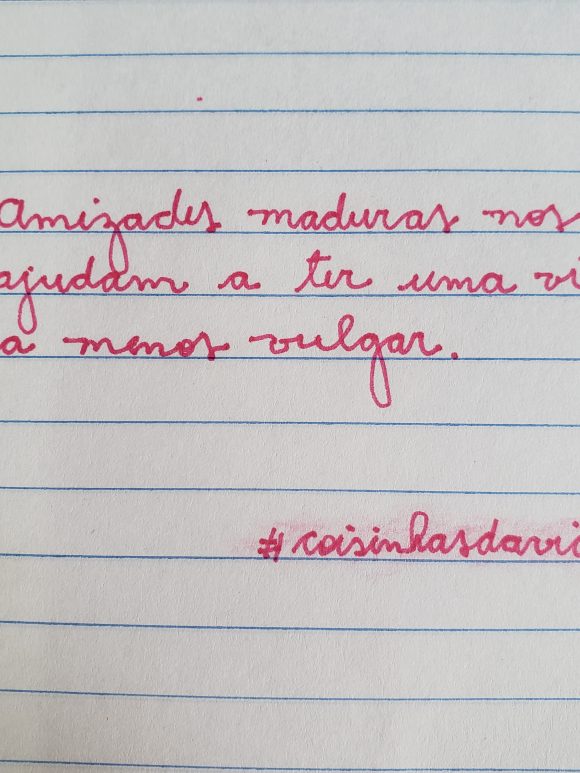 Amizades maduras nos
ajudam a ter uma vi
a menos vulgar.
#coisinhasdavid